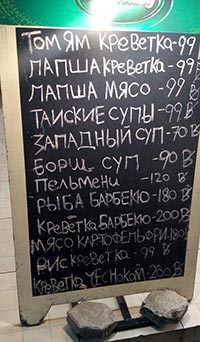 ТОМ ЯМ КРЕВЕТКА-99
ЛАПША КРЕВЕТКА-99
ЛАПША МЯСО -99 B
ТАЙСКИЕ СУПЫ -99 B
ЗАПАДНЫЙ СУП-70 B
БОРЩ СУП -90 B
ПЕЛЬМЕНИ -120 B
РЫБА БАРБЕКЮ-180 B
КРЕВЕТКА БАРБЕКЮ-200 B
МЯСО КАРТОФЕЛЬ ФРИ-180 B
РИС КРЕВЕТКА - 99 B
КРЕВЕТКА ЧЕСНОКОМ-200 B